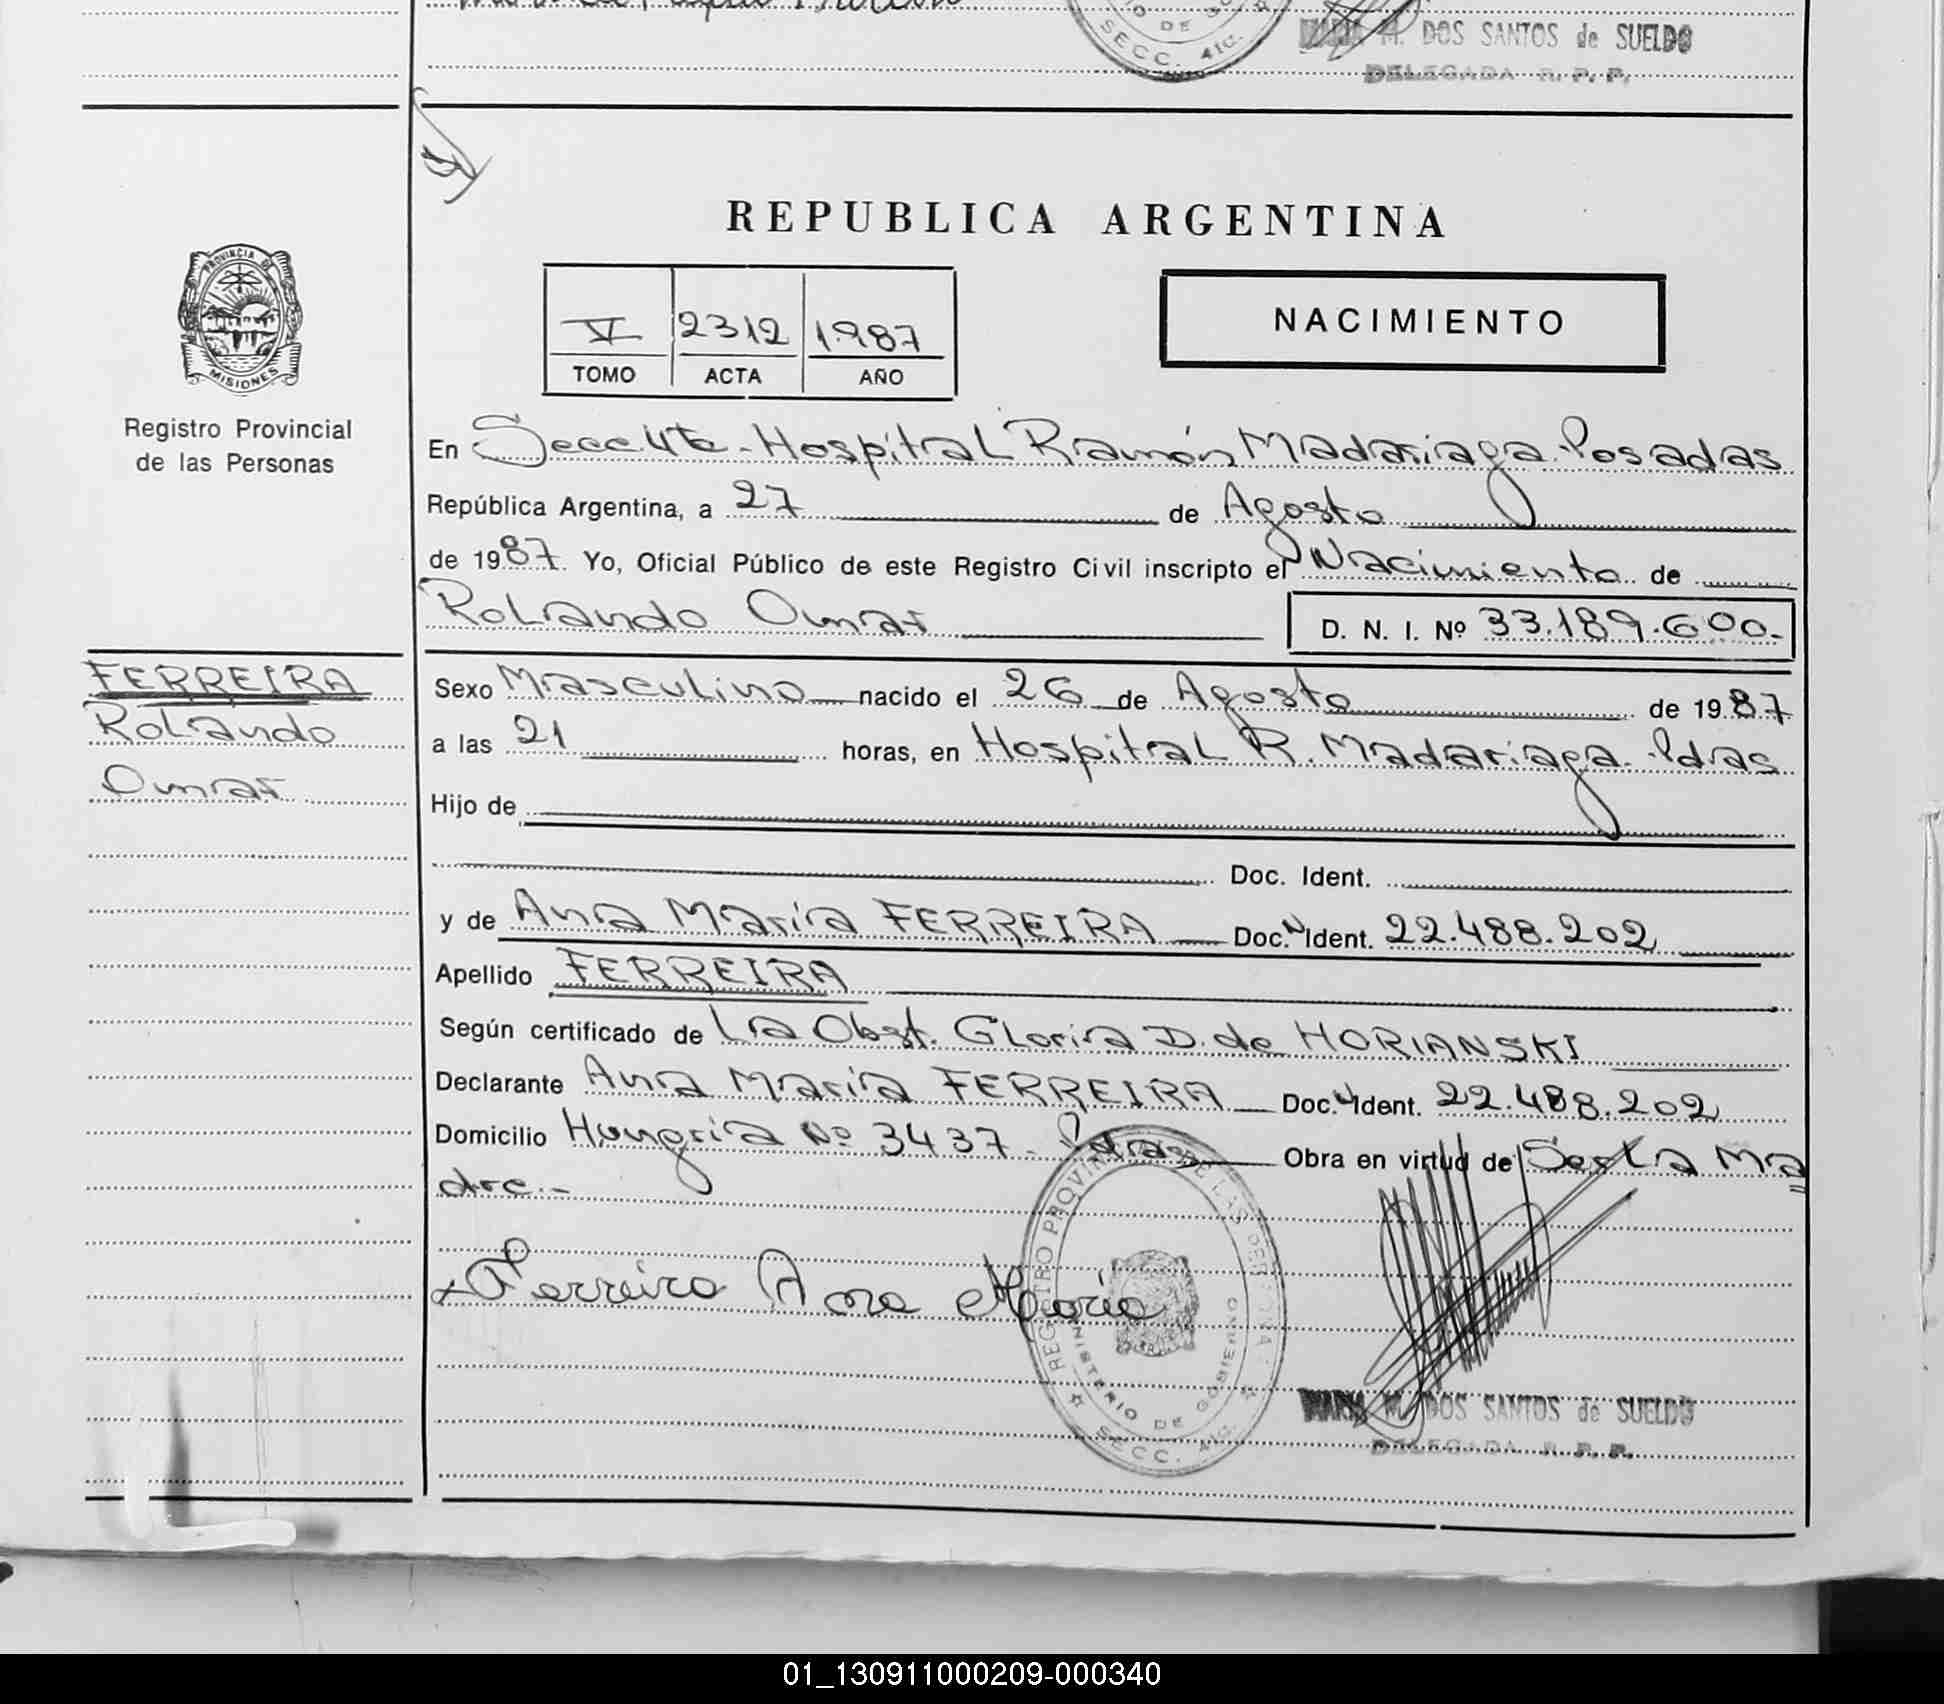 SECC. 4ta.
MARIA M. DOS SANTOS de SUELDO
DELEGADA R. P. P.
REPUBLICA ARGENTINA
PROVINCIA DE
MISIONES
Registro Provincial
de las Personas
V 2312 1.987
TOMO ACTA AÑO
NACIMIENTO
En Secc. 4ta - Hospital Ramón Madariaga - Posadas
República Argentina, a 27 de Agosto
de 1987. Yo, Oficial Público de este Registro Civil inscripto el Nacimiento de
Rolando Omar
D. N. I. Nº 33.189.600.-
FERREIRA
Rolando
Omar
Sexo Masculino nacido el 26 de Agosto de 1987
a las 21 horas, en Hospital R. Madariaga - Pdas
Hijo de
Doc. Ident.
y de Ana María FERREIRA Doc. N Ident. 22.488.202
Apellido FERREIRA
Según certificado de La Obst. Gloria D. de HORIANSKI
Declarante Ana María FERREIRA Doc. Ident. 22.488.202
Domicilio Hungria Nº 3437 - Pdas Obra en virtud de Ser La Ma
dre.-
Ferreira Ana Maria
REGISTRO PROVINCIAL DE LAS PERSONAS
MINISTERIO DE GOBIERNO
SECC. 4ta.
MARIA M. DOS SANTOS de SUELDO
DELEGADA R. P. P.
01_130911000209-000340